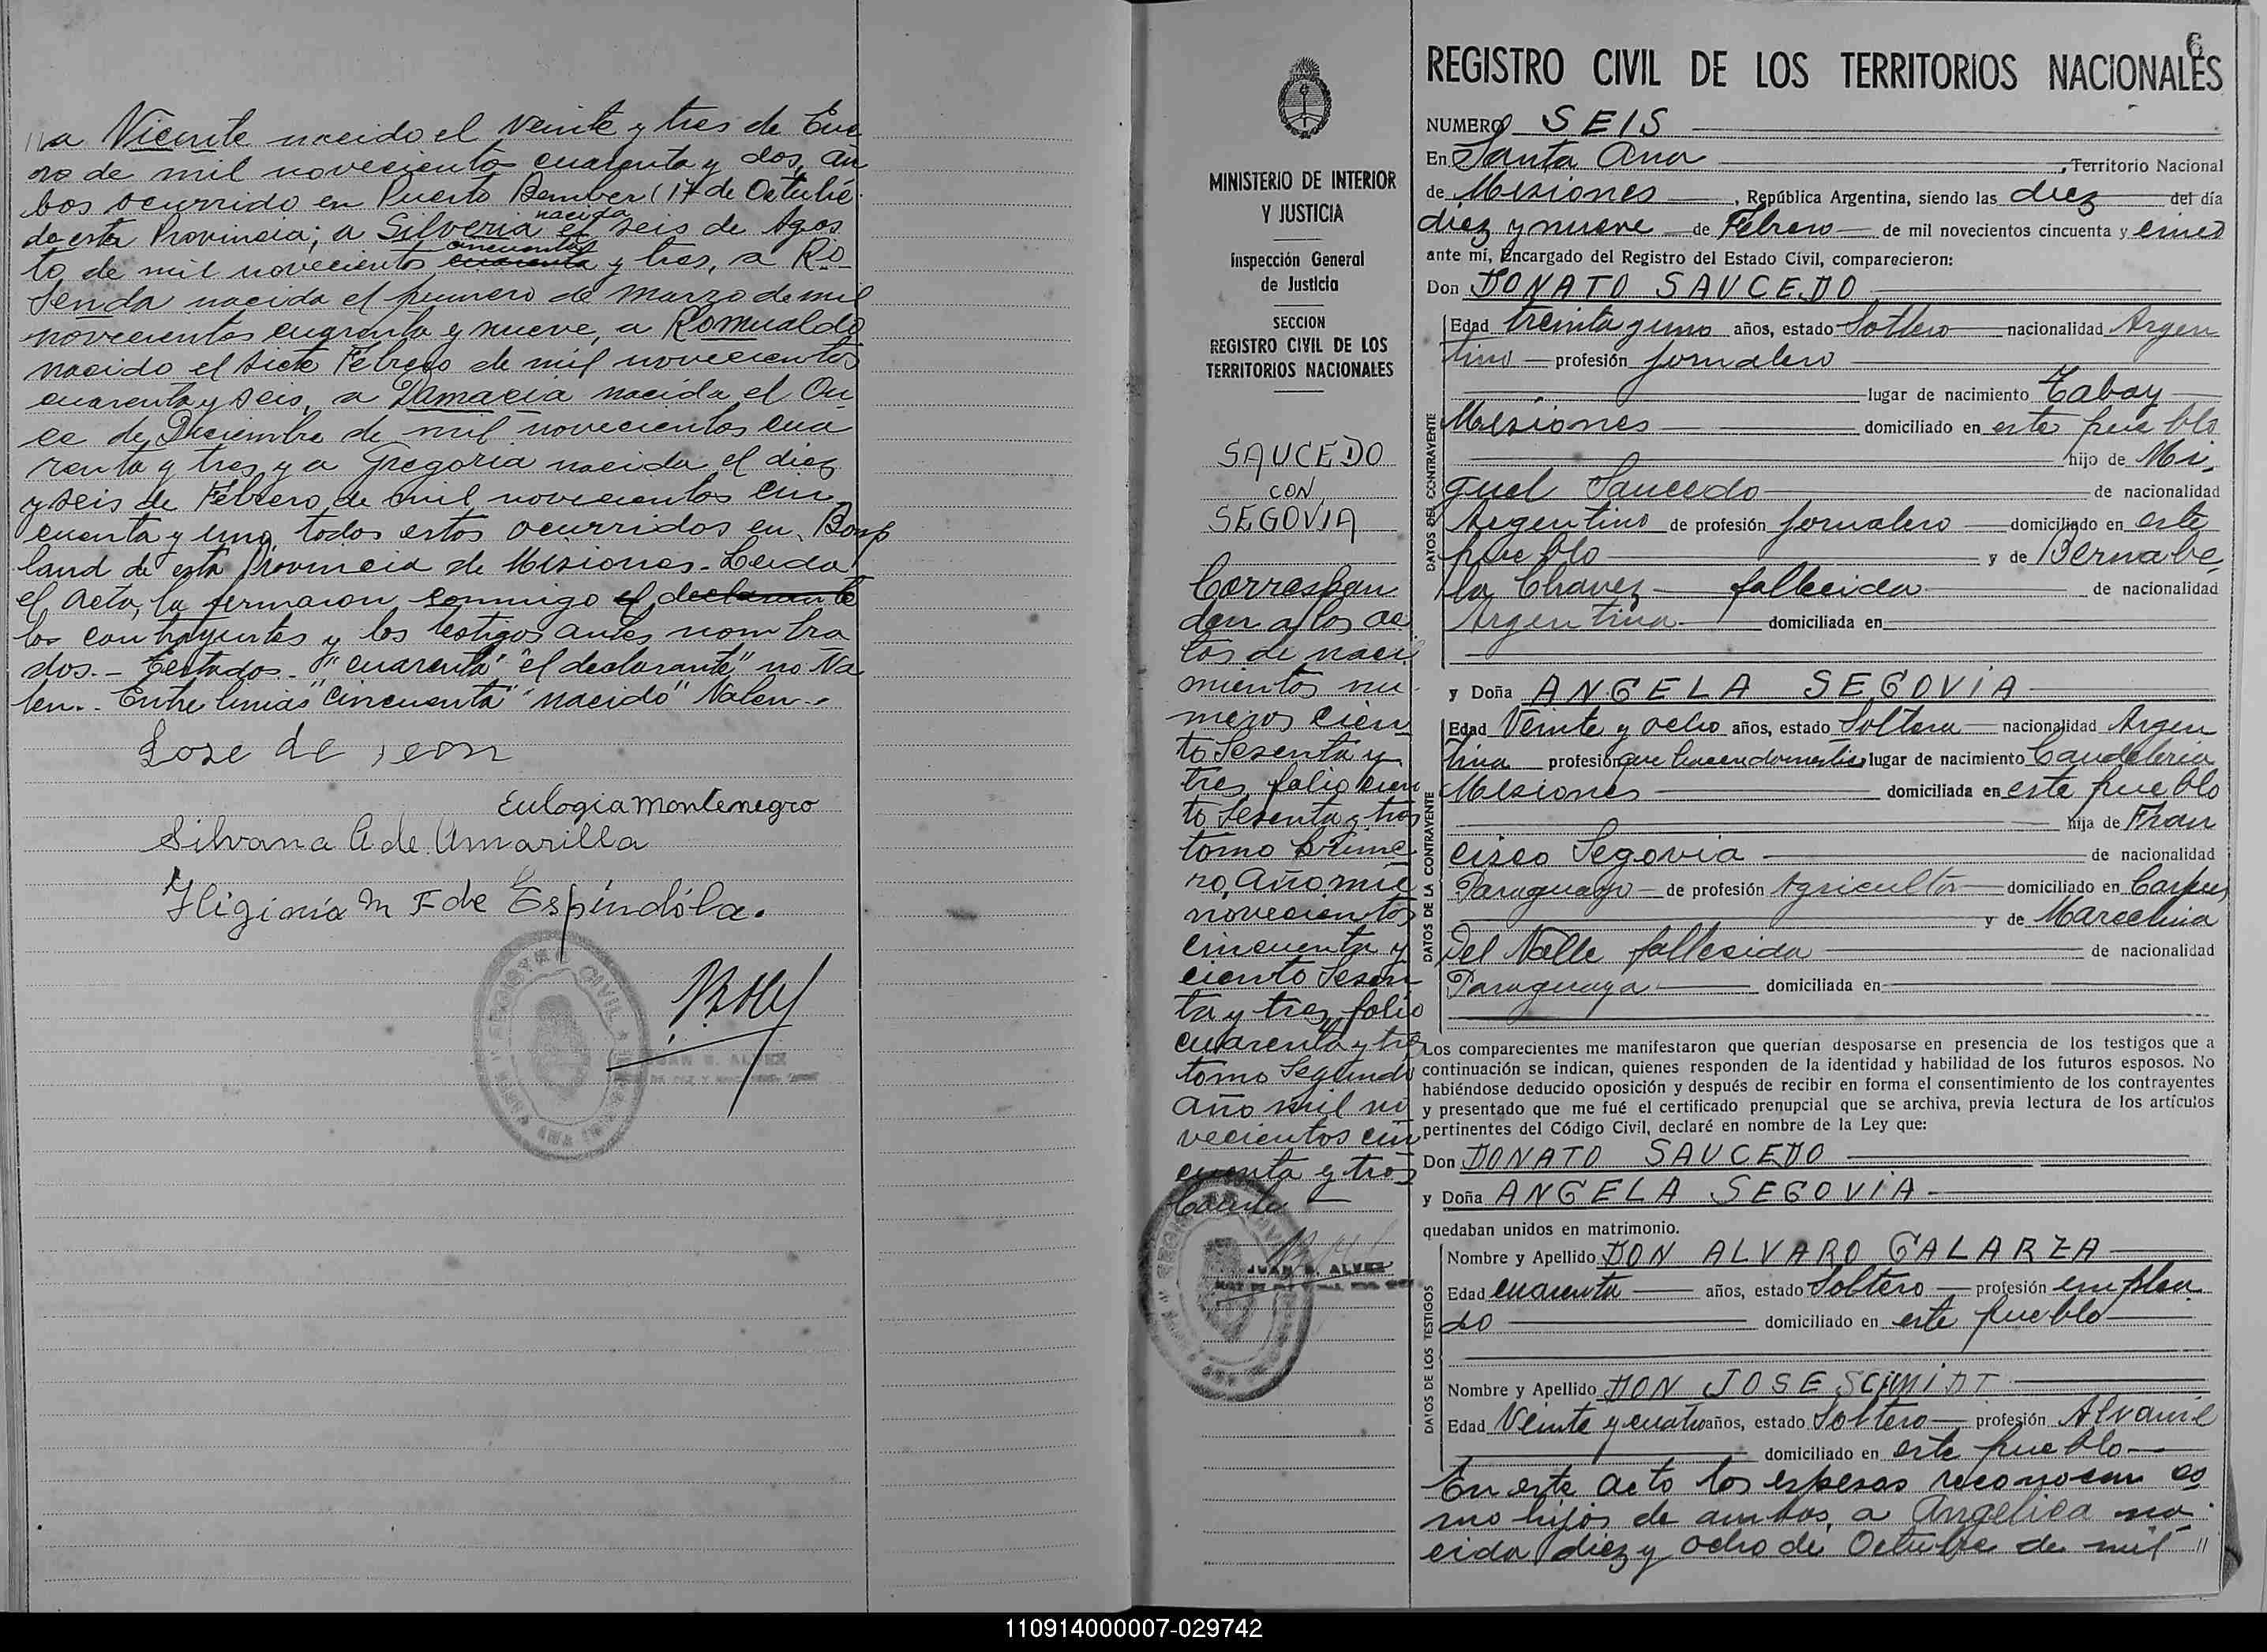 //a Vicente nacido el veinte y tres de Ene
ro de mil novecientos cuarenta y dos, am
bos ocurrido en Puerto Bember (17 de Octubre
de esta Provincia; a Silveria nacida el seis de Agos
to de mil novecientos cincuenta cuarenta y tres, a Ro
senda nacida el primero de marzo de mil
novecientos cuarenta y nueve, a Romualdo
nacido el siete Febrero de mil novecientos
cuarenta y seis, a Damacia nacida el On
ce de Diciembre de mil novecientos cua
renta y tres, y a Gregoria nacida el diez
y seis de Febrero de mil novecientos cin
cuenta y uno, todos estos ocurridos en Bomp
land de esta Provincia de Misiones. Leida
el acta, la firmaron conmigo el declarante
los contrayentes y los testigos antes nombra
dos.- Testados.- "cuarenta" "el declarante" no Va
len.- Entre linias "cincuenta" "nacido" Valen.-
Lose de Leon
Eulogia Montenegro
Silvana A de Amarilla
Higinia M F de Espíndola.
JUAN B. ALVEZ
6
REGISTRO CIVIL DE LOS TERRITORIOS NACIONALES
MINISTERIO DE INTERIOR
Y JUSTICIA
Inspección General
de Justicia
SECCION
REGISTRO CIVIL DE LOS
TERRITORIOS NACIONALES
SAUCEDO
CON
SEGOVIA
Correspon
den a los ac
tos de naci
mientos nu
meros cien
to Sesenta y
tres, folio cien
to Sesenta y tres
tomo prime
ro, Año mil
novecientos
cincuenta y
ciento Sesen
ta y tres, folio
cuarenta y tres
tomo Segundo
Año mil no
vecientos cin
cuenta y tres
Conste
JUAN B. ALVEZ
NUMERO SEIS
En Santa Ana, Territorio Nacional
de Misiones, República Argentina, siendo las diez del día
diez y nueve de Febrero de mil novecientos cincuenta y cinco
ante mí, Encargado del Registro del Estado Civil, comparecieron:
Don DONATO SAUCEDO
DATOS DEL CONTRAYENTE
Edad treinta y uno años, estado Soltero nacionalidad Argen
tino profesión jornalero
lugar de nacimiento Tabay
Misiones domiciliado en este pueblo
hijo de Mi
guel Saucedo de nacionalidad
Argentino de profesión jornalero domiciliado en este
pueblo y de Bernabe
la Chavez fallecida de nacionalidad
Argentina domiciliada en
y Doña ANGELA SEGOVIA
DATOS DE LA CONTRAYENTE
Edad Veinte y ocho años, estado Soltera nacionalidad Argen
tina profesión que hacen domestic lugar de nacimiento Candelaria
Misiones domiciliada en este pueblo
hija de Fran
cisco Segovia de nacionalidad
Paraguayo de profesión Agricultor domiciliado en Corpus
y de Marcelina
Del Valle fallecida de nacionalidad
Paraguaya domiciliada en
Los comparecientes me manifestaron que querían desposarse en presencia de los testigos que a
continuación se indican, quienes responden de la identidad y habilidad de los futuros esposos. No
habiéndose deducido oposición y después de recibir en forma el consentimiento de los contrayentes
y presentado que me fué el certificado prenupcial que se archiva, previa lectura de los artículos
pertinentes del Código Civil, declaré en nombre de la Ley que:
Don DONATO SAUCEDO
y Doña ANGELA SEGOVIA
quedaban unidos en matrimonio.
DATOS DE LOS TESTIGOS
Nombre y Apellido DON ALVARO GALARZA
Edad cuarenta años, estado Soltero profesión emplea
do domiciliado en este pueblo
Nombre y Apellido DON JOSE SCHMIDT
Edad Veinte y cuatro años, estado Soltero profesión Alvanil
domiciliado en este pueblo
En este acto los esposos reconocen co
mo hijos de ambos, a Angelica na
cida diez y ocho de Octubre de mil //
110914000007-029742